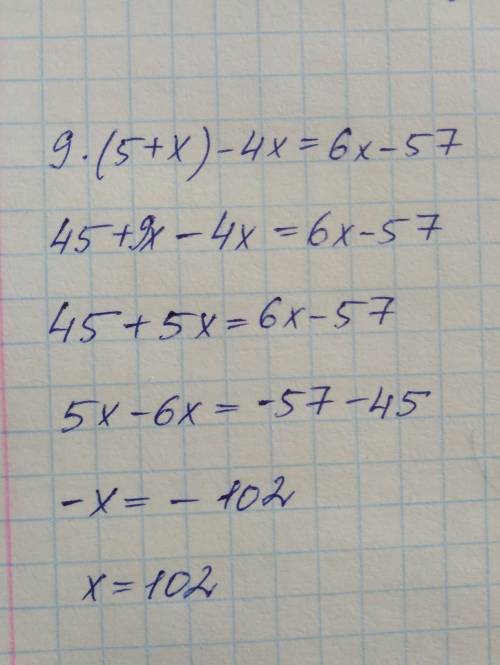 9·(5+x)-4x=6x-57
45+9x-4x=6x-57
45+5x=6x-57
5x-6x=-57-45
-x=-102
x=102